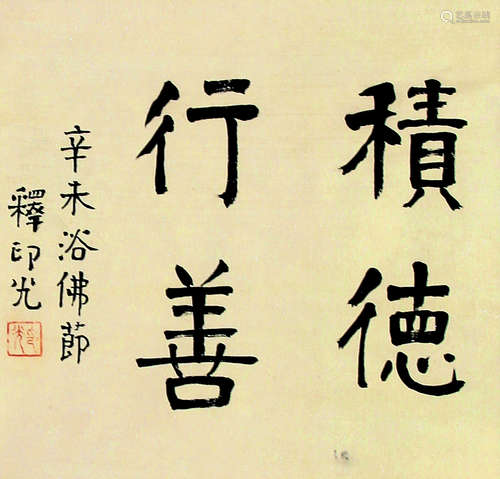 積德
行善
辛未浴佛節
釋印光